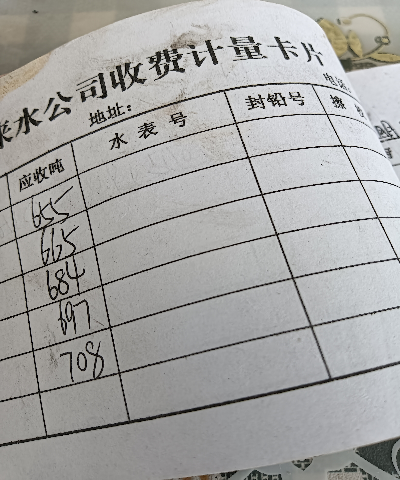 来水公司收费计量卡片
地址：
电话
应收吨
水表号
封铅号
655
665
684
697
708